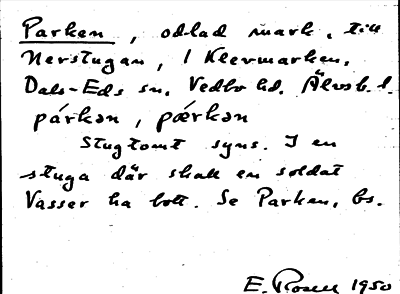 Parken, odlad mark, till
Nerstugan, i Klevmarken,
Dals-Eds sn. Vedbo hd. Älvsb. l.
párkən, pǽrkən
Stugtomt syns. I en
stuga där skall en soldat
Vasser ha bott. Se Parken, bs.
E. Rosell 1950